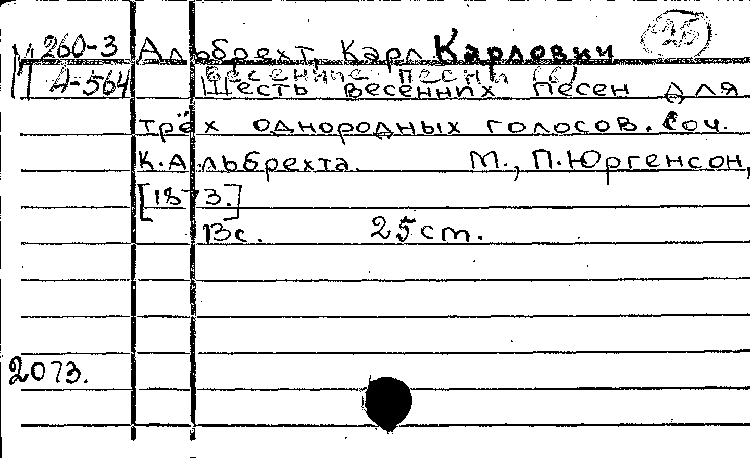 М 260-3 Альбрехт, Карл Карлович 25
А-564 Весенние песни (6)
Шесть весенних песен для
трёх однородных голосов. Соч.
К. Альбрехта. М., П. Юргенсон,
[1873.]
13с. 25 ст.
2073.